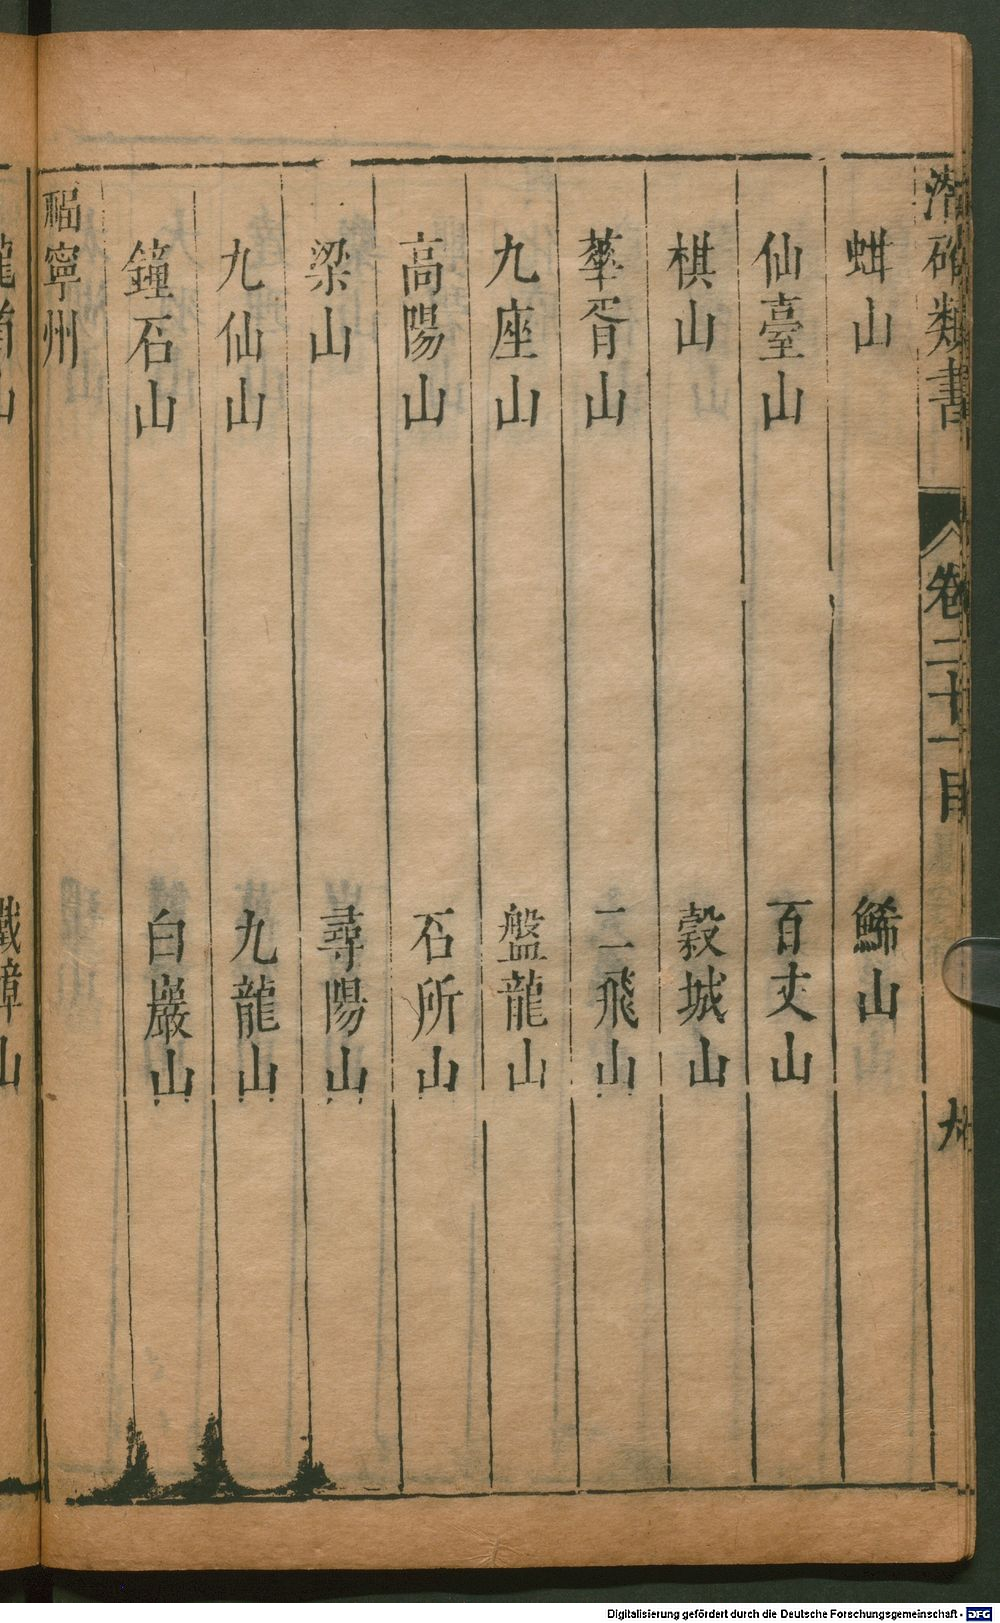 潛確類書 卷二十一目 九
蚶山 鯑山
仙臺山 百丈山
棋山 穀城山
華胥山 二飛山
九座山 盤龍山
高陽山 石所山
梁山 尋陽山
九仙山 九龍山
鐘石山 白巖山
福寧州
龍首山
Digitalisierung gefördert durch die Deutsche Forschungsgemeinschaft - DFG